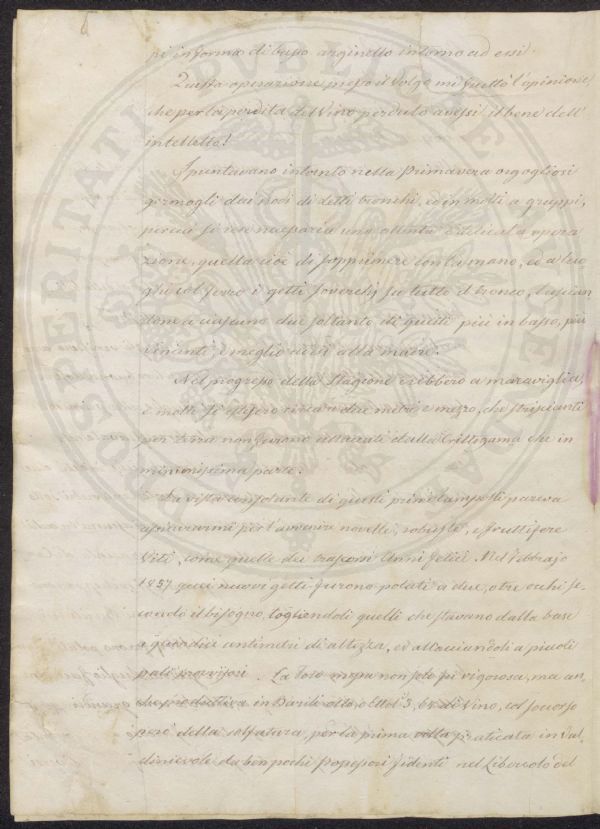 pi in forma di basso arginello intorno ad essi.
Questa operazione presso il Volgo mi fruttò l'opinione
che per la perdita del Vino perduto avessi il bene dell'
intelletto!
Spuntavano intanto nella Primavera orgogliosi
germogli dai nodi di detti tronchi, ed in molti a gruppi,
perciò si rese necessaria una attenta e delicata opera
zione, quella cioè di sopprimere con la mano, ed a luo
ghi col ferro i getti soverchj su tutto il tronco, lascian
done a ciascuno due soltanto di quelli più in basso, più
vicini, e meglio nutriti alla madre.
Nel progresso della Stagione crebbero a maraviglia,
e molti si stesero circa a due metri e mezzo, che striscianti
per terra non furono attaccati dalla Crittogama che in
minorissima parte.
La vista consolante di questi primi lampi pareva
assicurarmi per l'avvenire novelle, robuste, e fruttifere
Viti, come quelle dei trascorsi Anni felici. Nel Febbrajo
1857 questi nuovi getti furono potati a due, o tre occhi se
condo il bisogno, togliendoli quelli che stavano dalla base
a quindici centimetri di altezza, ed allacciandoli a piccoli
pali provvisori. La loro messa non solo fu vigorosa, ma an
che produttiva in Barili otto, o Ettol. 3,64 di Vino, col soccorso
però della solfatura, per la prima volta praticata in Val
dinievole da ben pochi Possessori fidenti nel Libercolo del